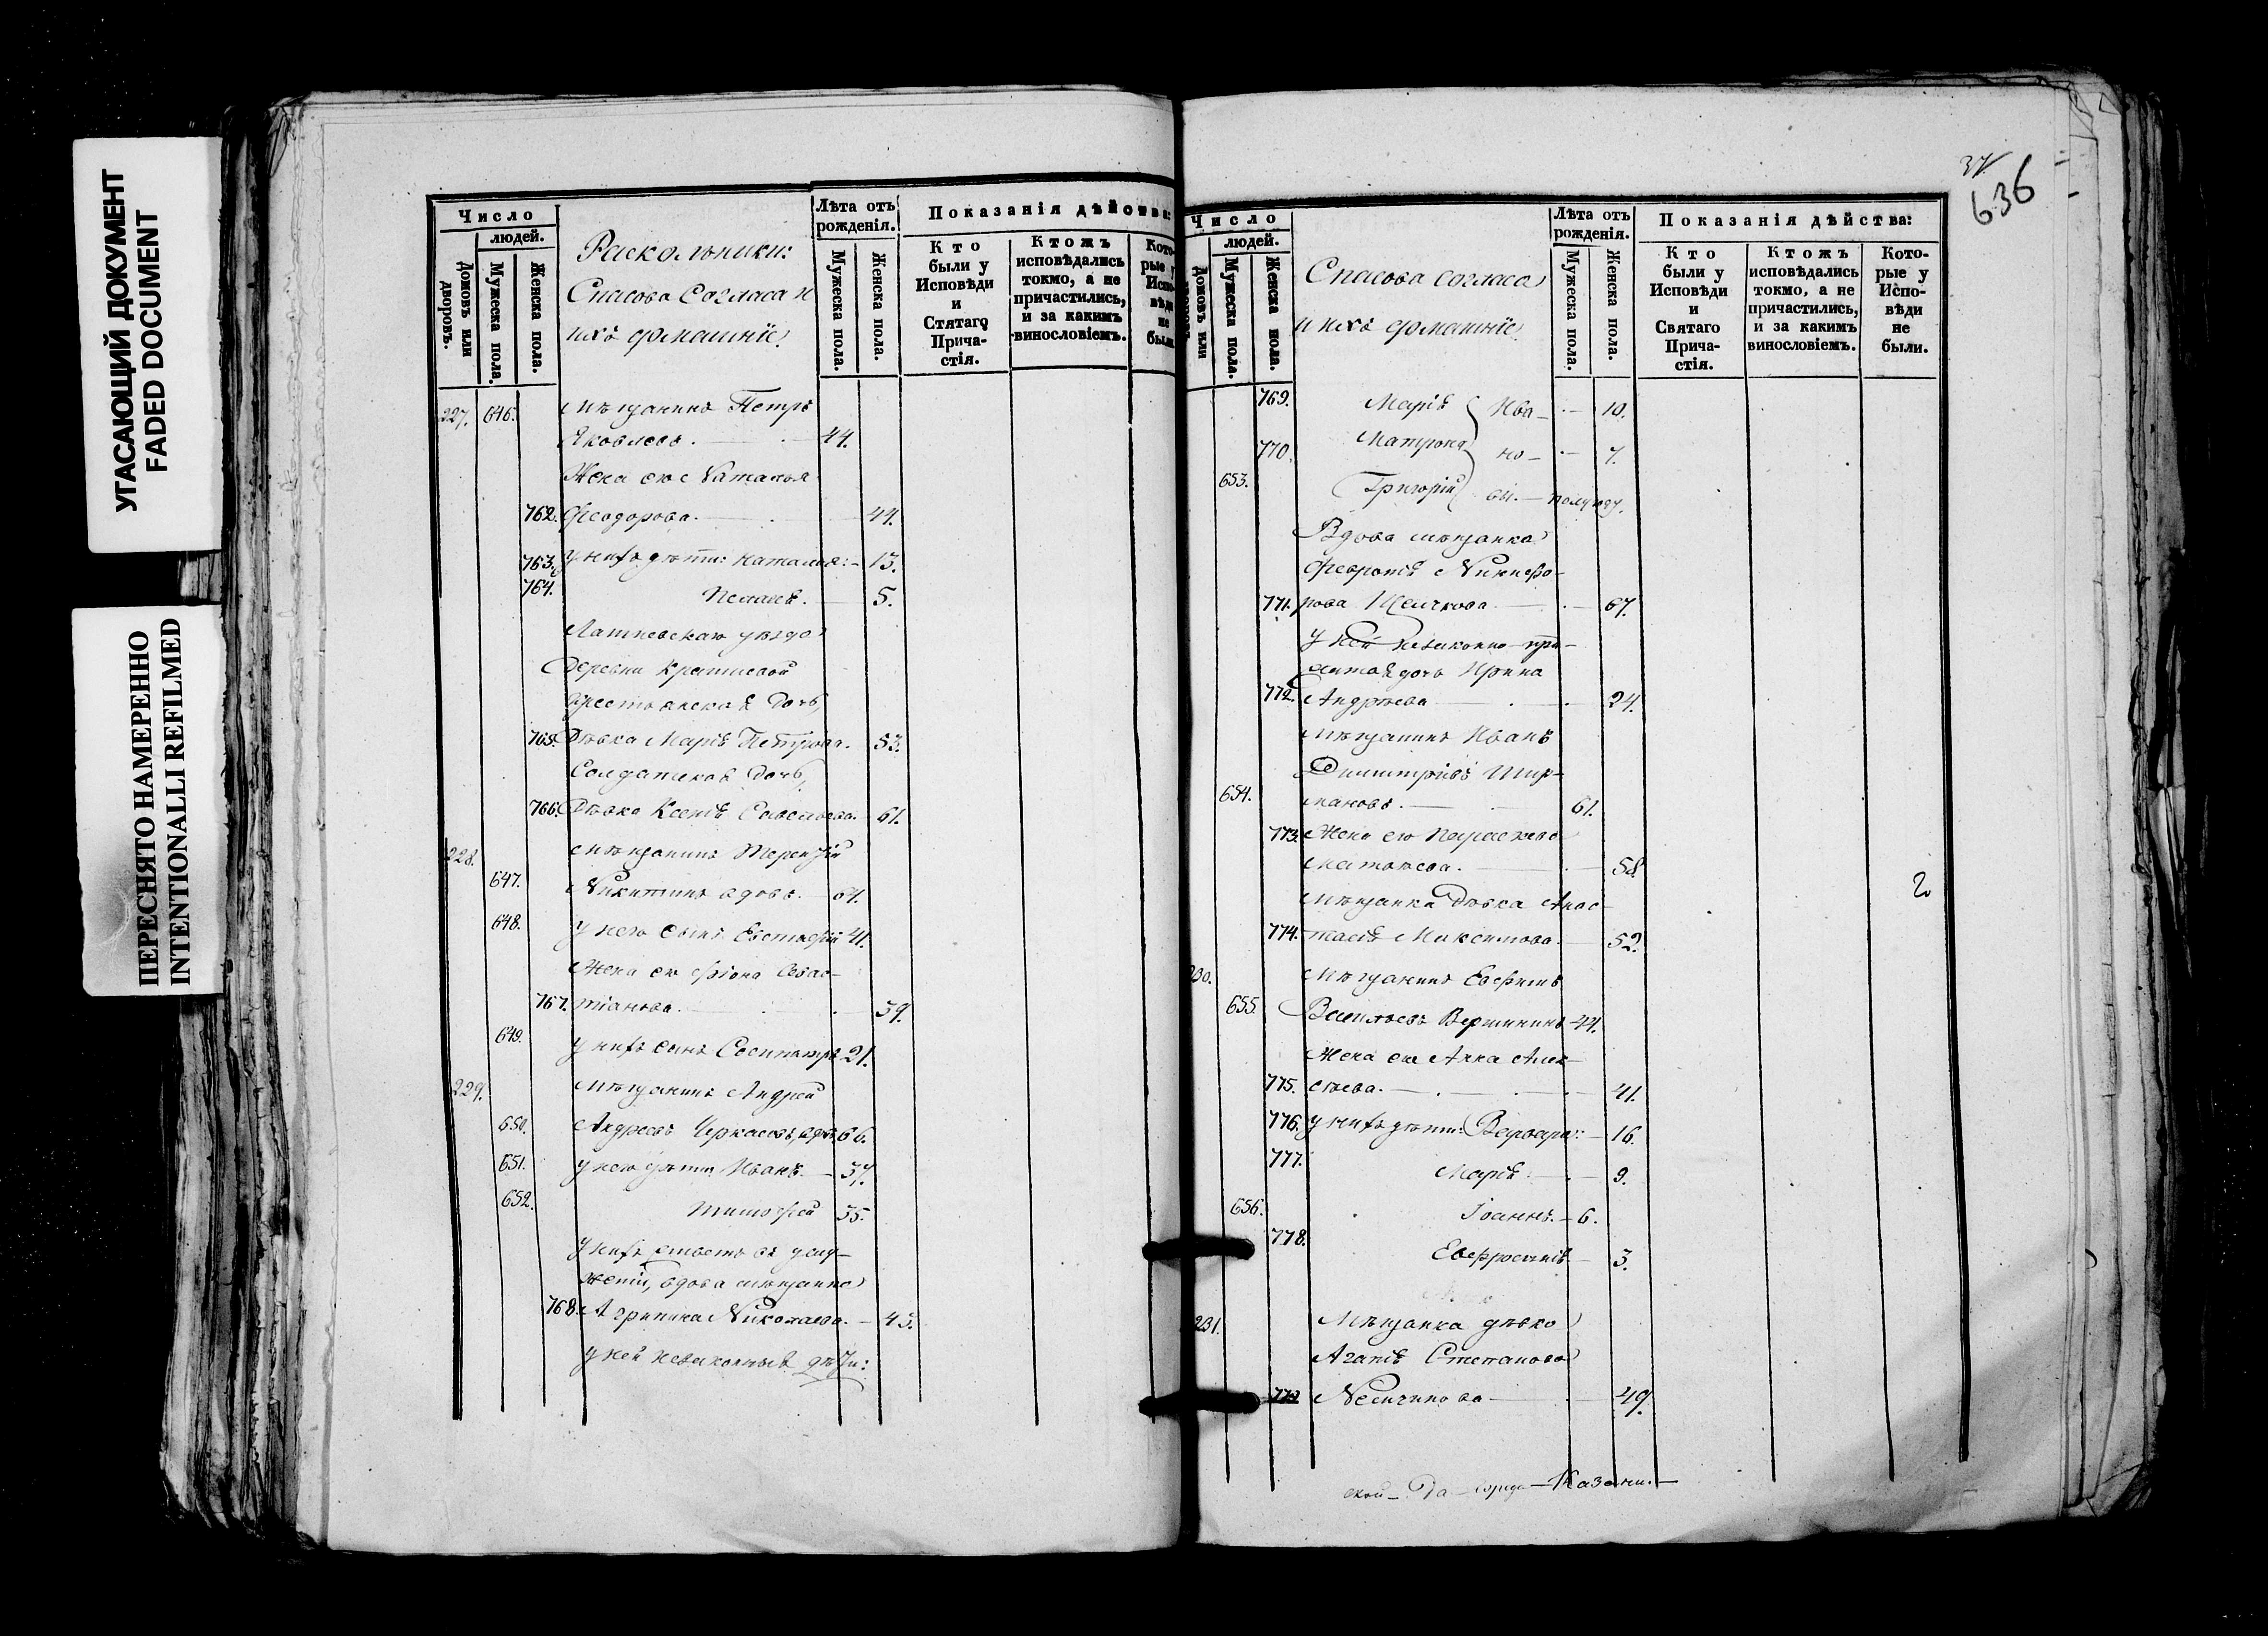 УГАСАЮЩИЙ ДОКУМЕНТ
FADED DOCUMENT
ПЕРЕСНЯТО НАМЕРЕННО
INTENTIONALLI REFILMED
Число
людей.
Домовъ или дворовъ.
Мужеска пола.
Женска пола.
Раскольники:
Спасова Согласа и
ихъ домашніе
Лѣта отъ рожденія.
Мужеска пола.
Женска пола.
Показанія дѣйства:
Кто были у Исповѣди и Стятаго Прича-стія.
Ктожъ исповѣдались токмо, а не причастились, и за какимъ винословіемъ.
Кото-рые у Испо-вѣди не были.
227. 646. Мѣщанинъ Петръ
Яковлевъ. 44.
Жена его Наталья
762. Феодорова. 44.
763. У нихъ дѣти: Наталія: 13.
764. Пелагія. 5.
Лаишевскаго уѣзда
Деревни
крестьянская дочь,
765. Дѣвка Марія Петрова. 53.
Солдатская дочь,
766. Дѣвка Ксенія Савельева. 61.
228. Мѣщанинъ Терентій
647. Никитинъ вдовъ. 64.
648. У него сынъ Евстафій 41.
Жена его Фіона Севас-
767. тіанова. 39.
649. У нихъ сынъ Сосипатръ 21.
229. Мѣщанинъ Андрей
650. Андреевъ Черкасовъ, вдовъ 66.
651. У него дѣти Иванъ. 37.
652. Тимофей 35.
У нихъ живетъ въ услу-
женіи, вдова мѣщанка
768. Агрипина Николаева. 43.
У ней незаконныя дѣти:
37
636
Число
людей.
Домовъ или дворовъ.
Мужеска пола.
Женска пола.
Спасова согласа
и ихъ домашніе
Лѣта отъ рожденія.
Мужеска пола.
Женска пола.
Показанія дѣйства:
Кто были у Исповѣди и Святаго Прича-стія.
Ктожъ исповѣдались токмо, а не причастились, и за какимъ винословіемъ.
Кото-рые у Испо-вѣди не были.
769. Марія Ива- 10.
770. Матрона но- 7.
653. Григорій вы. полугоду.
Вдова мѣщанка
Февронія Никифо-
771. рова 67.
У ней незаконно при-
житая дочь Ирина
772. Андреева 24.
Мѣщанинъ Иванъ
Димитріевъ Шир-
654. мановъ. 61.
773. Жена его Параскева
Матвѣева. 58.
Мѣщанка Дѣвка Анас-
774. тасія Максимова. 52.
230. Мѣщанинъ Евфимъ
655. Васильевъ Вершининъ 44.
Жена его Анна Алек-
775. сѣева. 41.
776. У нихъ дѣти: Варвара: 16.
777. Марія 9.
656. Іоаннъ. 6.
778. Евфросинія 3.
231. Мѣщанка дѣвка
Агапія Степанова
779. 49.
ской города Казани.